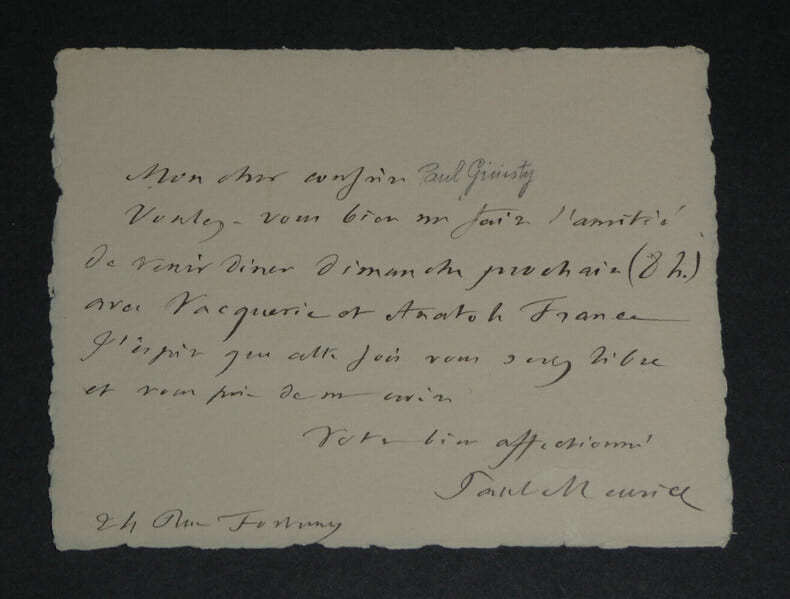 Mon cher confrère Paul Ginisty
Voulez-vous bien me faire l'amitié
de venir diner dimanche prochain (8 h.)
avec Vacquerie et Anatole France
J'espère que cette fois vous serez libre
et vous prie de me croire
Votre bien affectionné
Paul Meurice
24 Rue Fortuny